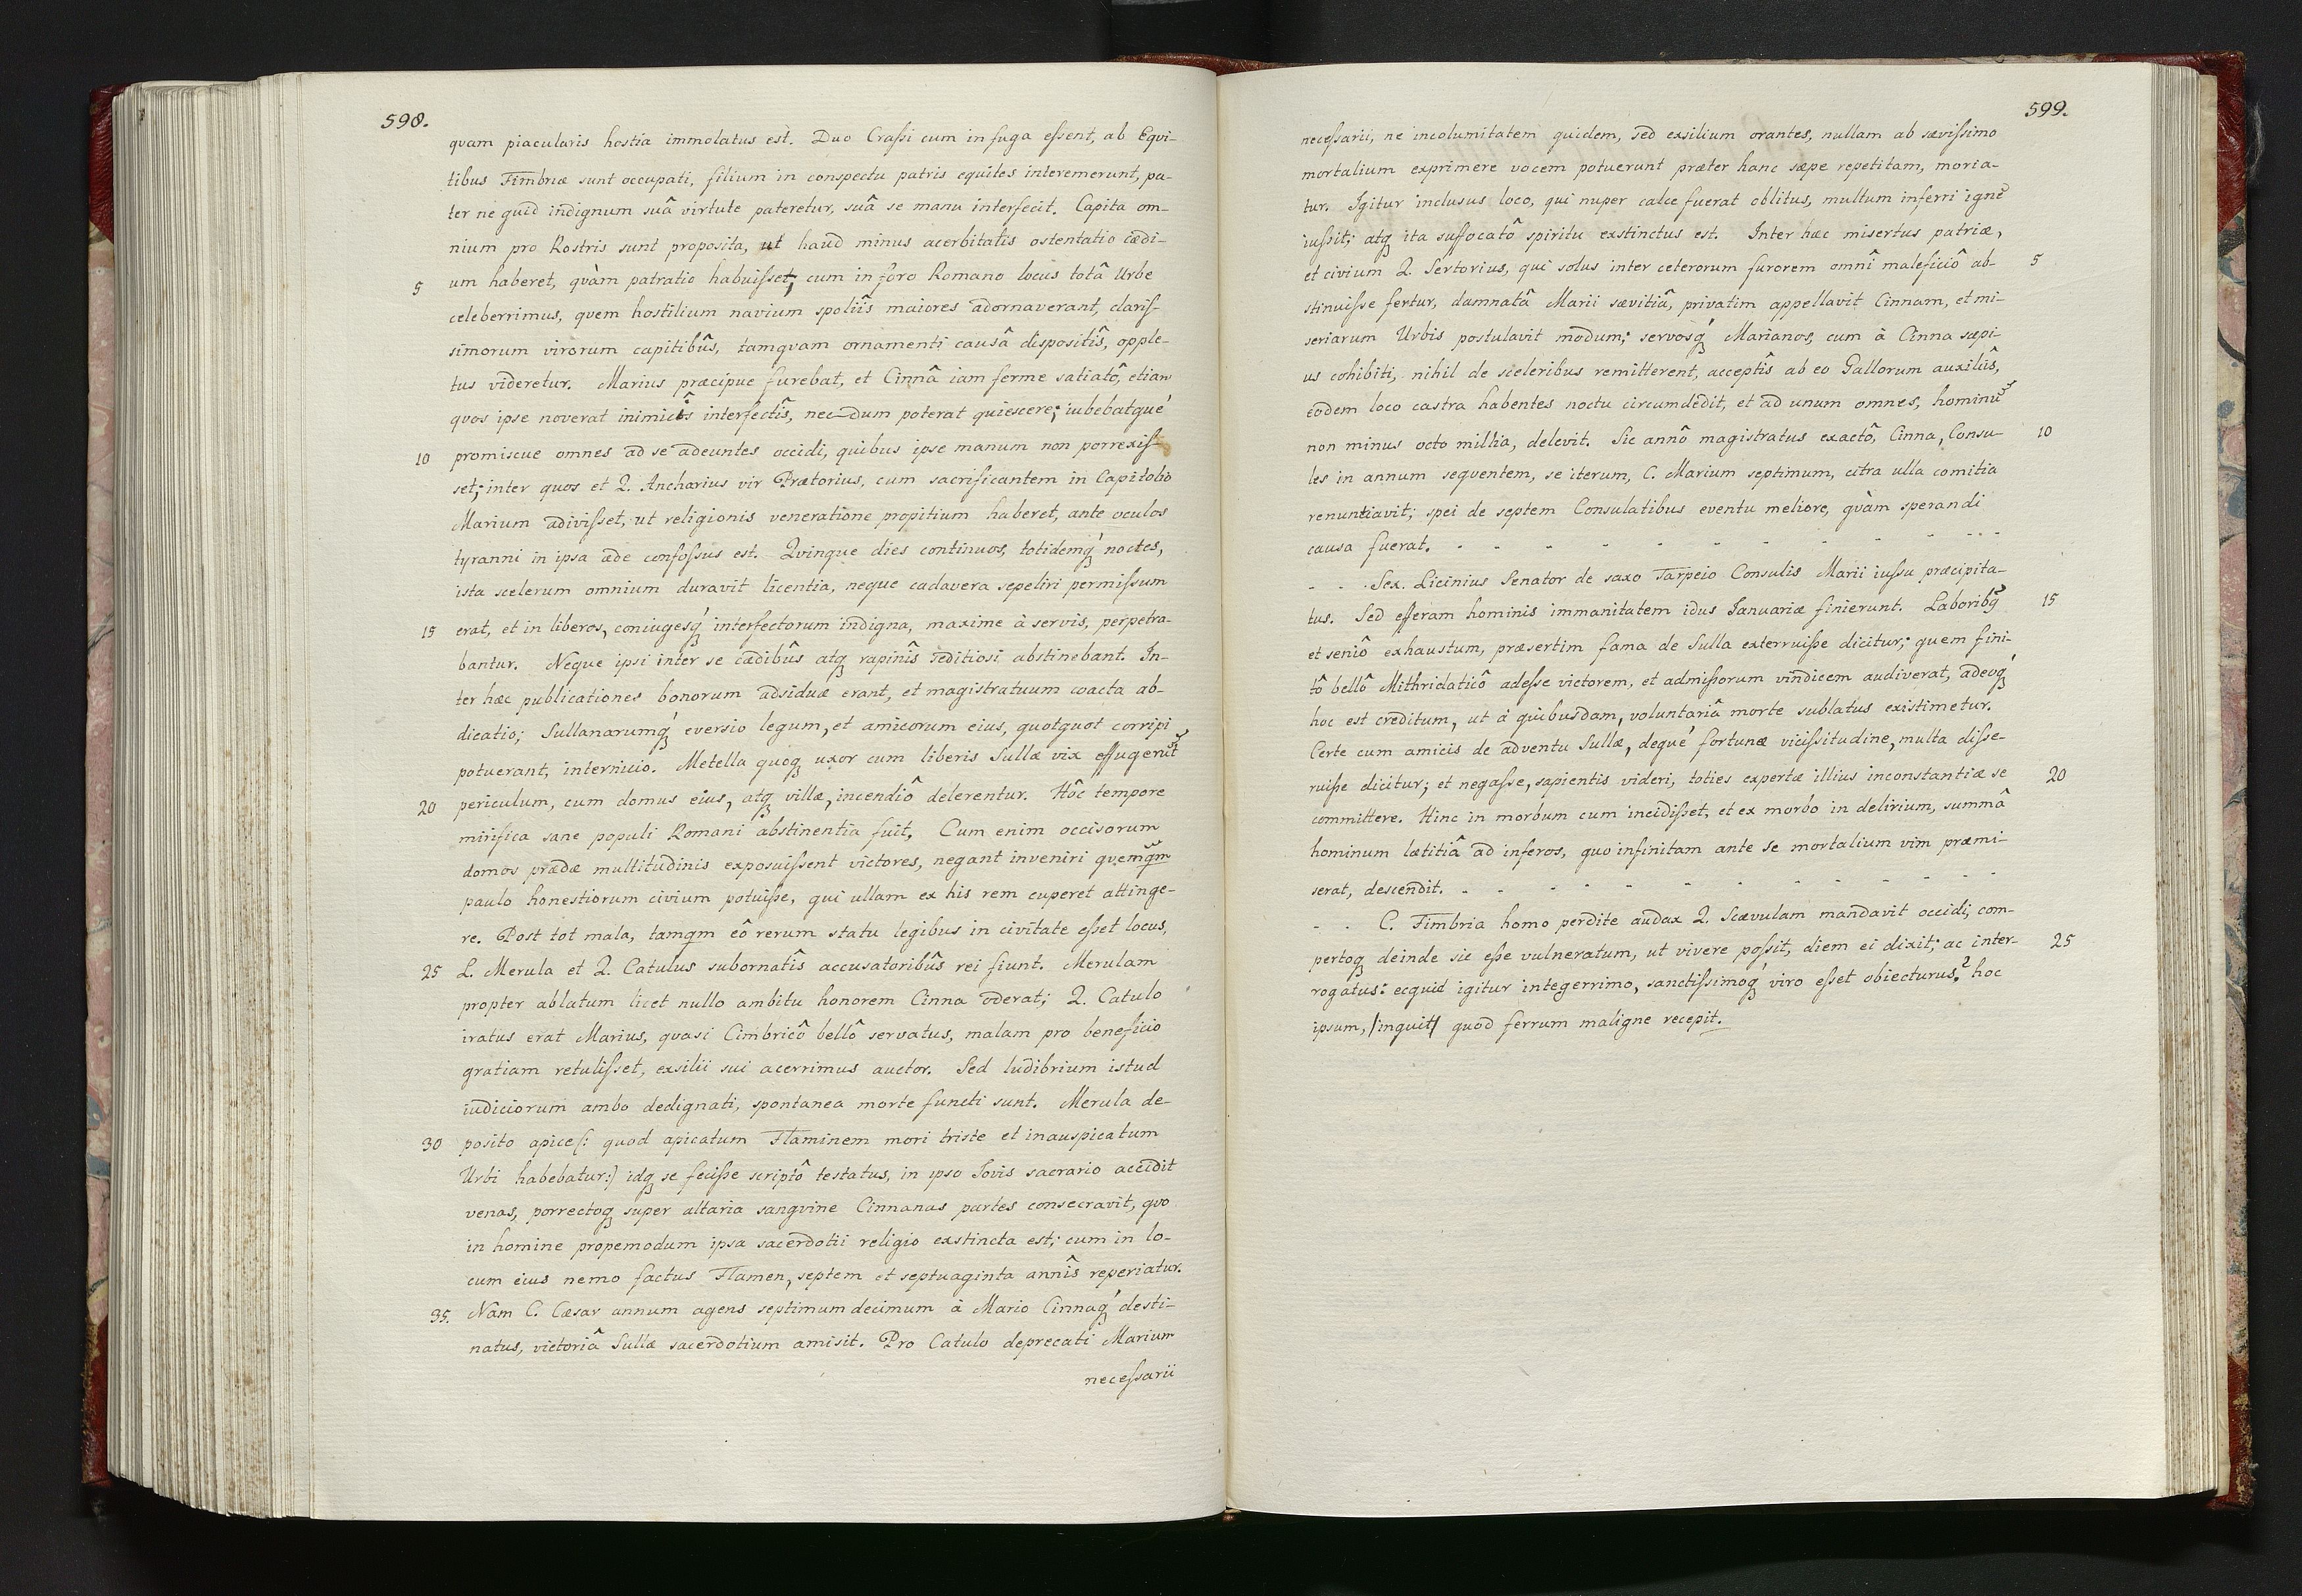 598.
quam piacularis hostia immolatus est. Duo Craſsi cum in fuga eſsent, ab Equi-
tibus Fimbriæ sunt occupati, filium in conspectu patris equites interemerunt, pa-
ter ne quid indignum suâ virtute pateretur, suâ se manu interfecit. Capita om-
nium pro Rostris sunt proposita, ut haud minus acerbitatis ostentatio cædi-
5 um haberet, qvàm patratio habuiſset; cum in foro Romano locus totâ Urbe
celeberrimus, qvem hostilium navium spoliîs maiores adornaverant, clariſ-
simorum virorum capitibûs, tamqvam ornamenti causâ dispositîs, opple-
tus videretur. Marius præcipue furebat, et Cinnâ iam ferme satiatô, etiam
quos ipse noverat inimicîs interfectîs, nec dum poterat quiescere; iubebatqué
10 promiscue omnes ad se adeuntes occidi, quibus ipse manum non porrexiſ-
set; inter quos et Q. Ancharius vir Prætorius, cum sacrificantem in Capitolio
Marium adiviſset, ut religionis veneratione propitium haberet, ante oculos
tyranni in ipsa æde confoſsus est. Qvinque dies continuos, totidemq́ noctes,
ista scelerum omnium duravit licentia, neque cadavera sepeliri permiſsum
15 erat, et in liberos, coniugesq́ interfectorum indigna, maxime à servis, perpetra-
bantur. Neque ipsi inter se cædibûs atq rapinîs seditiosi abstinebant. In-
ter hæc publicationes bonorum adsiduæ erant, et magistratuum coacta ab-
dicatio; Sullanarumq́ eversio legum, et amicorum eius, quotquot corripi
potuerant, internicio. Metella quoq uxor cum liberis Sullæ vix effugerūt
20 periculum, cum domus eius, atq villæ, incendiô delerentur. Hôc tempore
mirifica sane populi Romani abstinentia fuit. Cum enim occisorum
domos prædæ multitudinis exposuiſsent victores, negant inveniri qvemqm
paulo honestiorum civium potuiſse, qui ullam ex his rem cuperet attinge-
re. Post tot mala, tamqm eô rerum statu legibus in civitate eſset locus,
25 L. Merula et Q. Catulus subornatîs accusatoribûs rei fiunt. Merulam
propter ablatum licet nullo ambitu honorem Cinna oderat; Q. Catulo
iratus erat Marius, qvasi Cimbricô bellô servatus, malam pro beneficio
gratiam retuliſset, exsilii sui acerrimus auctor. Sed ludibrium istud
iudiciorum ambo dedignati, spontanea morte functi sunt. Merula de-
30 posito apice (: quod apicatum Flaminem mori triste et inauspicatum
Urbi habebatur:) idq se feciſse scriptô testatus, in ipso Iovis sacrario accidit
venas, porrectoq super altaria sangvine Cinnanas partes consecravit, qvo
in homine propemodum ipsa sacerdotii religio exstincta est; cum in lo-
cum eius nemo factus Flamen, septem et septuaginta annîs reperiatur.
35. Nam C. Cæsar annum agens septimum decimum à Mario Cinnaq́ desti-
natus, victoriâ Sullæ sacerdotium amisit. Pro Catulo deprecati Marium
neceſsarii
599.
neceſsarii, ne incolumitatem quidem, sed exsilium orantes, nullam ab sæviſsimo
mortalium exprimere vocem potuerunt præter hanc sæpe repetitam, moria-
tur. Igitur inclusus loco, qui nuper calce fuerat oblitus, multum inferri ignē
iuſsit; atq ita suffocatô spiritu exstinctus est. Inter hæc misertus patriæ,
et civium Q. Sertorius, qui solus inter ceterorum furorem omnî maleficiô ab- 5
stinuiſse fertur, damnatâ Marii sævitiâ, privatim appellavit Cinnam, et mi-
seriarum Urbis postulavit modum; servosq́ Marianos, cum à Cinna sæpi-
us cohibiti, nihil de sceleribus remitterent, acceptîs ab eo Gallorum auxiliîs,
eodem loco castra habentes noctu circumdedit, et ad unum omnes, hominū
non minus octo millia, delevit. Sic annô magistratus exactô, Cinna, Consu- 10
les in annum seqventem, se iterum, C. Marium septimum, citra ulla comitia
renuntiavit; spei de septem Consulatibus eventu meliore, qvàm sperandi
causa fuerat. - - - - - - - - - - - -
- - . Sex. Licinius Senator de saxo Tarpeio Consulis Marii iuſsu præcipita-
tus. Sed efferam hominis immanitatem idus Ianuariæ finierunt. Laboribq 15
et seniô exhaustum, præsertim fama de Sulla exterruiſse dicitur; quem fini-
tô bellô Mithridaticô adeſse victorem, et admiſsorum vindicem audiverat, adeoq́
hoc est creditum, ut à quibusdam, voluntariâ morte sublatus existimetur.
Certe cum amicis de adventu Sullæ, dequé fortunæ viciſsitudine, multa diſse-
ruiſse dicitur; et negaſse, sapientis videri, toties expertæ illius inconstantiæ se 20
committere. Hinc in morbum cum incidiſset, et ex morbo in delirium, summâ
hominum lætitiâ ad inferos, quo infinitam ante se mortalium vim præmi-
serat, descendit. - - - - - - - - - - - -
- - C. Fimbria homo perdite audax Q. Scævulam mandavit occidi, com-
pertoq deinde sic eſse vulneratum, ut vivere poſsit, diem ei dixit; ac inter- 25
rogatus: ecquid igitur integerrimo, sanctiſsimoq́ viro eſset obiecturus? hoc
ipsum, /inquit/ quod ferrum maligne recepit.